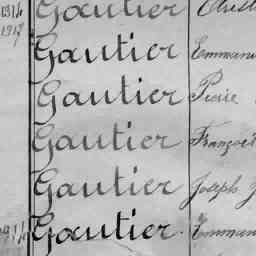 1914 Gautier
1917 Gautier Emmanu
Gautier Pierre
Gautier François
Gautier Joseph J
1914 Gautier. Emman